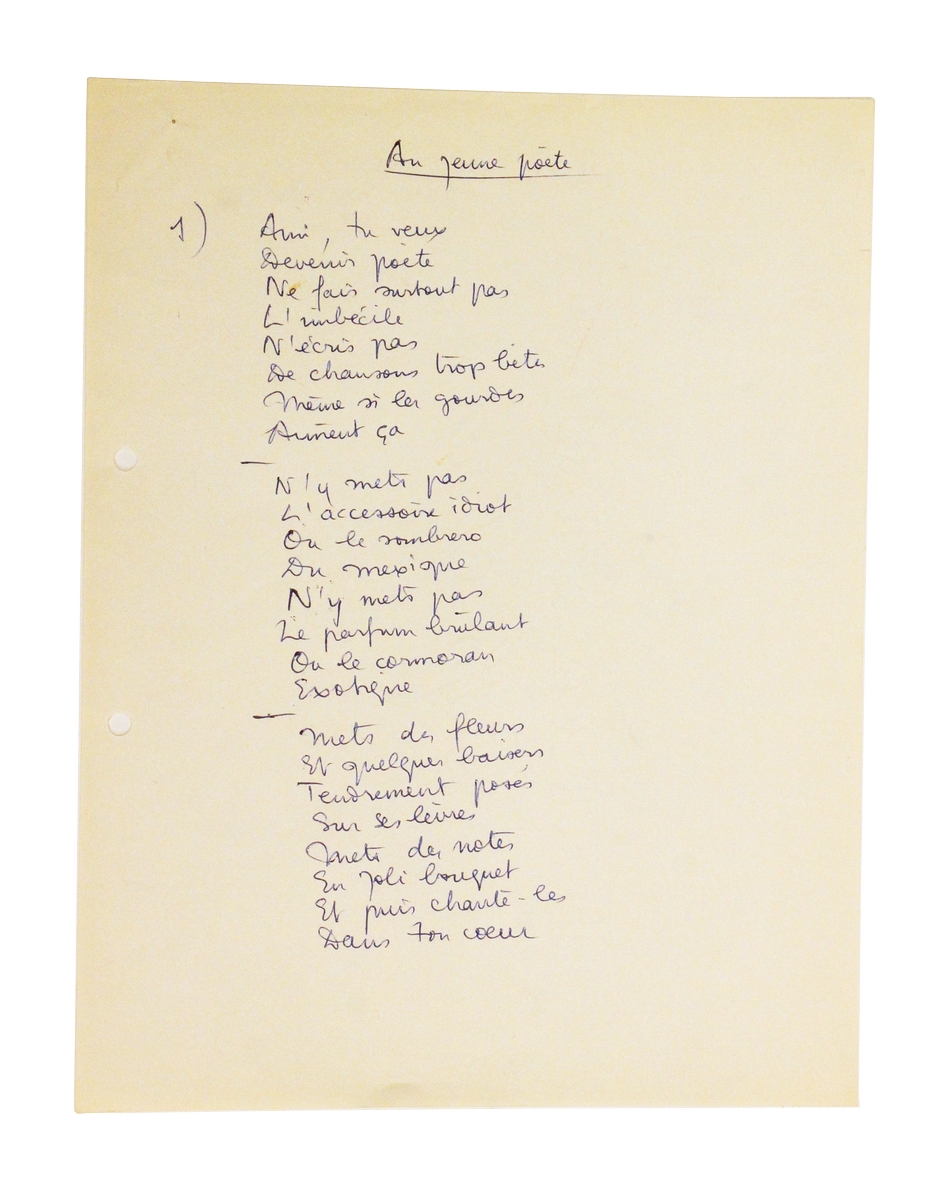 Au jeune poète
1) Ami, tu veux
Devenir poète
Ne fais surtout pas
L'imbécile
N'écris pas
De chansons trop bêtes
Même si les gourdes
Aiment ça
N'y mets pas
L'accessoire idiot
Ou le sombrero
Du mexique
N'y mets pas
Le parfum brûlant
Ou le cormoran
Exotique
Mets des fleurs
Et quelques baisers
Tendrement posés
Sur ses lèvres
Mets des notes
En joli bouquet
Et puis chante-les
Dans ton coeur